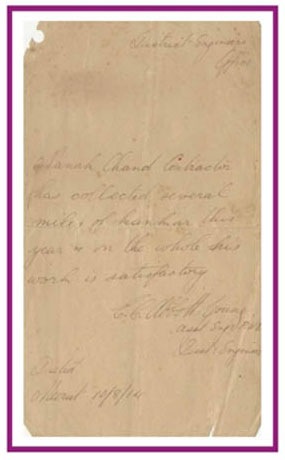 District Engineers
Office
Chand Contractor
has collected several
miles of kunkur this
year & on the whole his
work is satisfactory
Young
Asst Engr
Dist: Engineer
Dated
Meerut 10/8/14